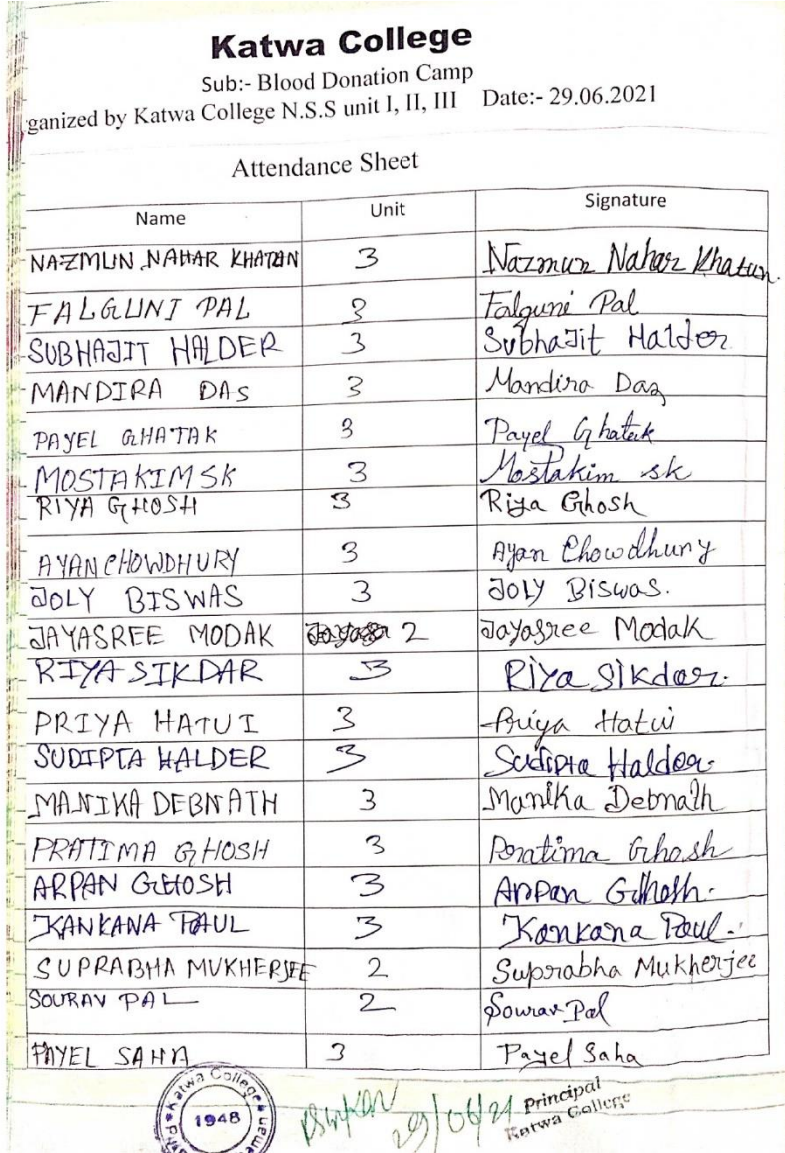 Katwa College
Sub:- Blood Donation Camp
rganized by Katwa College N.S.S unit I, II, III Date:- 29.06.2021
Attendance Sheet
Name Unit Signature
NAZMUN NAHAR KHATUN 3 Nazmun Nahar Khatun.
FALGUNI PAL 3 Falguni Pal
SUBHAJIT HALDER 3 Subhajit Halder
MANDIRA DAS 3 Mandira Das
PAYEL GHATAK 3 Payel Ghatak
MOSTAKIM SK 3 Mostakim sk
RIYA GHOSH 3 Riya Ghosh
AYAN CHOWDHURY 3 Ayan Chowdhury
JOLY BISWAS 3 JOLY Biswas.
JAYASREE MODAK 2 Jayasree Modak
RIYA SIKDAR 3 Riya Sikdar.
PRIYA HATUI 3 Priya Hatui
SUDIPTA HALDER 3 Sudipta Halder.
MANIKA DEBNATH 3 Manika Debnath
PRATIMA GHOSH 3 Pratima Ghosh
ARPAN GHOSH 3 Arpan Ghosh.
KANKANA PAUL 3 Kankana Paul.
SUPRABHA MUKHERJEE 2 Suprabha Mukherjee
SOURAV PAL 2 Sourav Pal
PAYEL SAHA 3 Payel Saha
Katwa College
1948
29/06/21
Principal
Katwa College